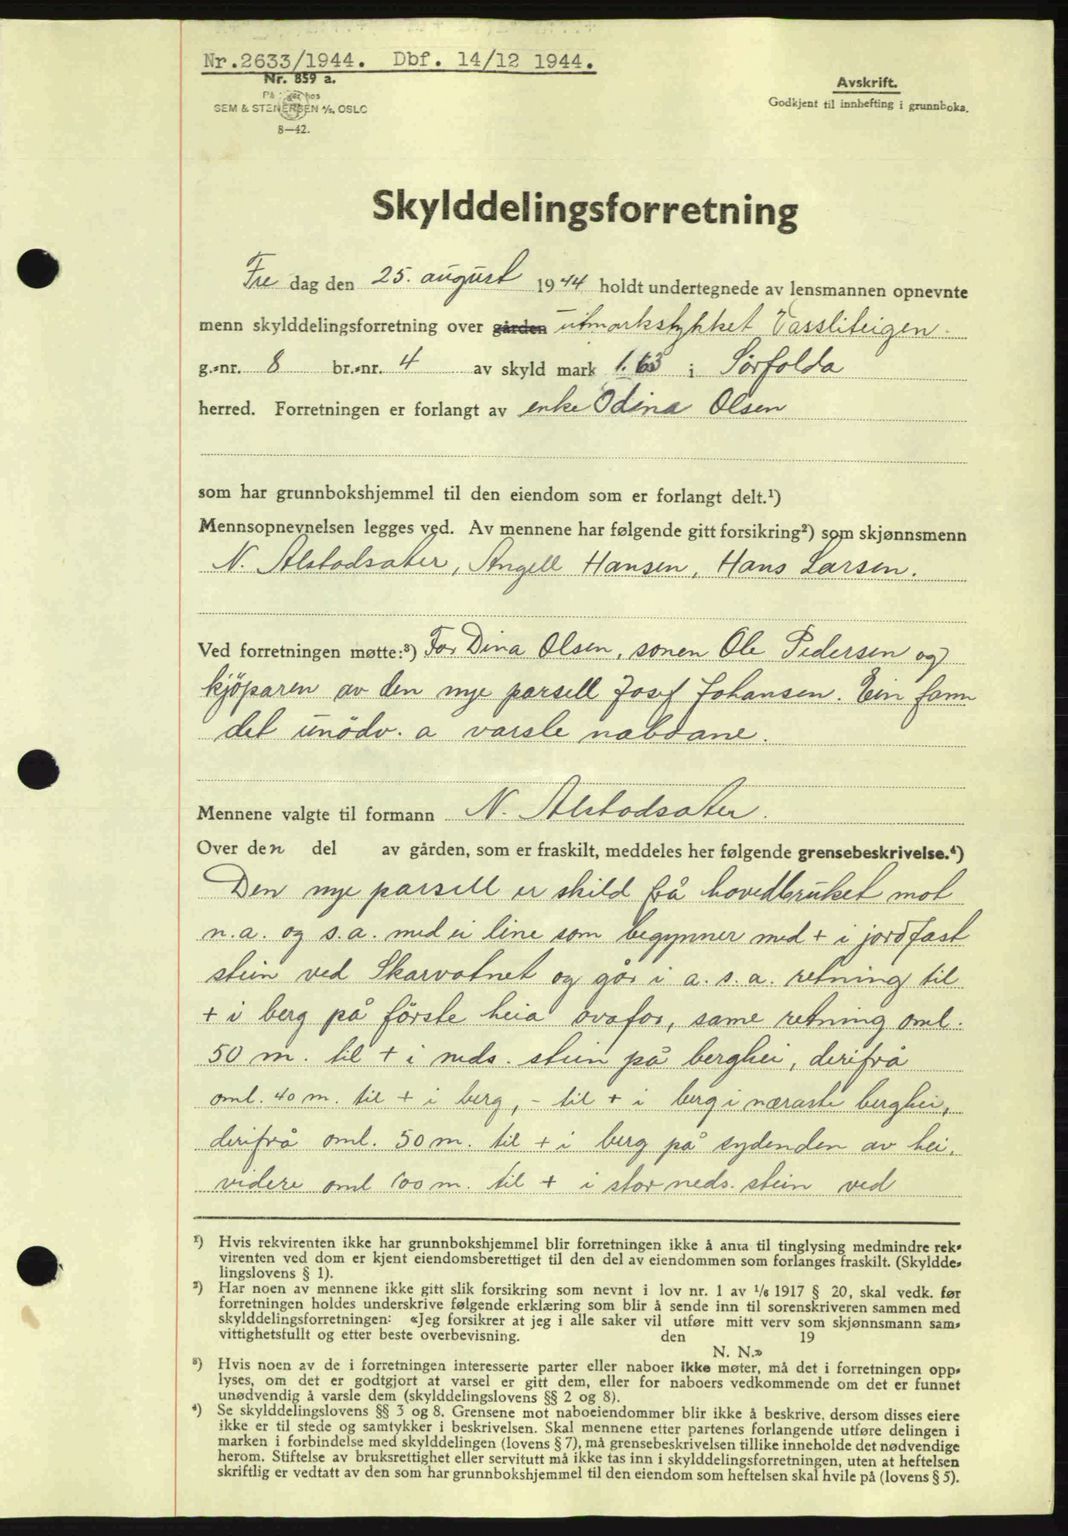 Nr.2633/1944. Dbf. 14/12 1944.
Nr. 859 a.
SEM & STENERSEN A/S, OSLO
8—42.
Avskrift.
Godkjent til innhefting i grunnboka.
Skylddelingsforretning
Fre dag den 25. august 1944 holdt undertegnede av lensmannen opnevnte
menn skylddelingsforretning over gården utmarkstykket Vassliteigen.
g.nr. 8 br.nr. 4 av skyld mark 1.63 i Sörfolda
herred. Forretningen er forlangt av enke Odina Olsen
som har grunnbokshjemmel til den eiendom som er forlangt delt.¹)
Mennsopnevnelsen legges ved. Av mennene har følgende gitt forsikring²) som skjønnsmenn
N. Alstadsæter, Angell Hansen, Hans Larsen.
Ved forretningen møtte:³) For Dina Olsen, sonen Ole Pedersen og
kjöparen av den nye parsell Josef Johansen. Ein fann
det unödv. a varsle naboane.
Mennene valgte til formann N. Alstadsæter.
Over den del av gården, som er fraskilt, meddeles her følgende grensebeskrivelse.⁴)
Den nye parsell er skild frå hovedbruket mot
n.a. og s.a. med ei line som begynner med + i jordfast
stein ved Skarvatnet og går i a.s.a. retning til
+ i berg på förste heia ovafor, same retning oml.
50 m. til + i neds. stein på berghei, derifrå
oml. 40 m. til + i berg, - til + i berg i næraste berghei,
derifrå oml. 50 m. til + i berg på sydenden av hei,
videre oml 100 m. til + i stor neds. stein ved
¹) Hvis rekvirenten ikke har grunnbokshjemmel blir forretningen ikke å anta til tinglysing medmindre rek-
virenten ved dom er kjent eiendomsberettiget til den del av eiendommen som forlanges fraskilt. (Skyldde-
lingslovens § 1).
²) Har noen av mennene ikke gitt slik forsikring som nevnt i lov nr. 1 av 1/6 1917 § 20, skal vedk. før
forretningen holdes underskrive følgende erklæring som blir å sende inn til sorenskriveren sammen med
skylddelingsforretningen: «Jeg forsikrer at jeg i alle saker vil utføre mitt verv som skjønnsmann sam-
vittighetsfullt og etter beste overbevisning. den 19
N. N.»
³) Hvis noen av de i forretningen interesserte parter eller naboer ikke møter, må det i forretningen opp-
lyses, om det er godtgjort at varsel er gitt dem, eller for naboers vedkommende om det er funnet
unødvendig å varsle dem (skylddelingslovens §§ 2 og 8).
⁴) Se skylddelingslovens §§ 3 og 8. Grensene mot naboeiendommer blir ikke å beskrive, dersom disses eiere
ikke er til stede og samtykker i beskrivelsen. Skal mennene etter partenes forlangende utføre delingen i
marken i forbindelse med skylddelingen (lovens § 7), må grensebeskrivelsen tillike inneholde det nødvendige
herom. Stiftelse av bruksrettighet eller servitutt må ikke tas inn i skylddelingsforretningen, uten at heftelsen
skriftlig er vedtatt av den som har grunnbokshjemmel til den eiendom som heftelsen skal hvile på (lovens § 5).